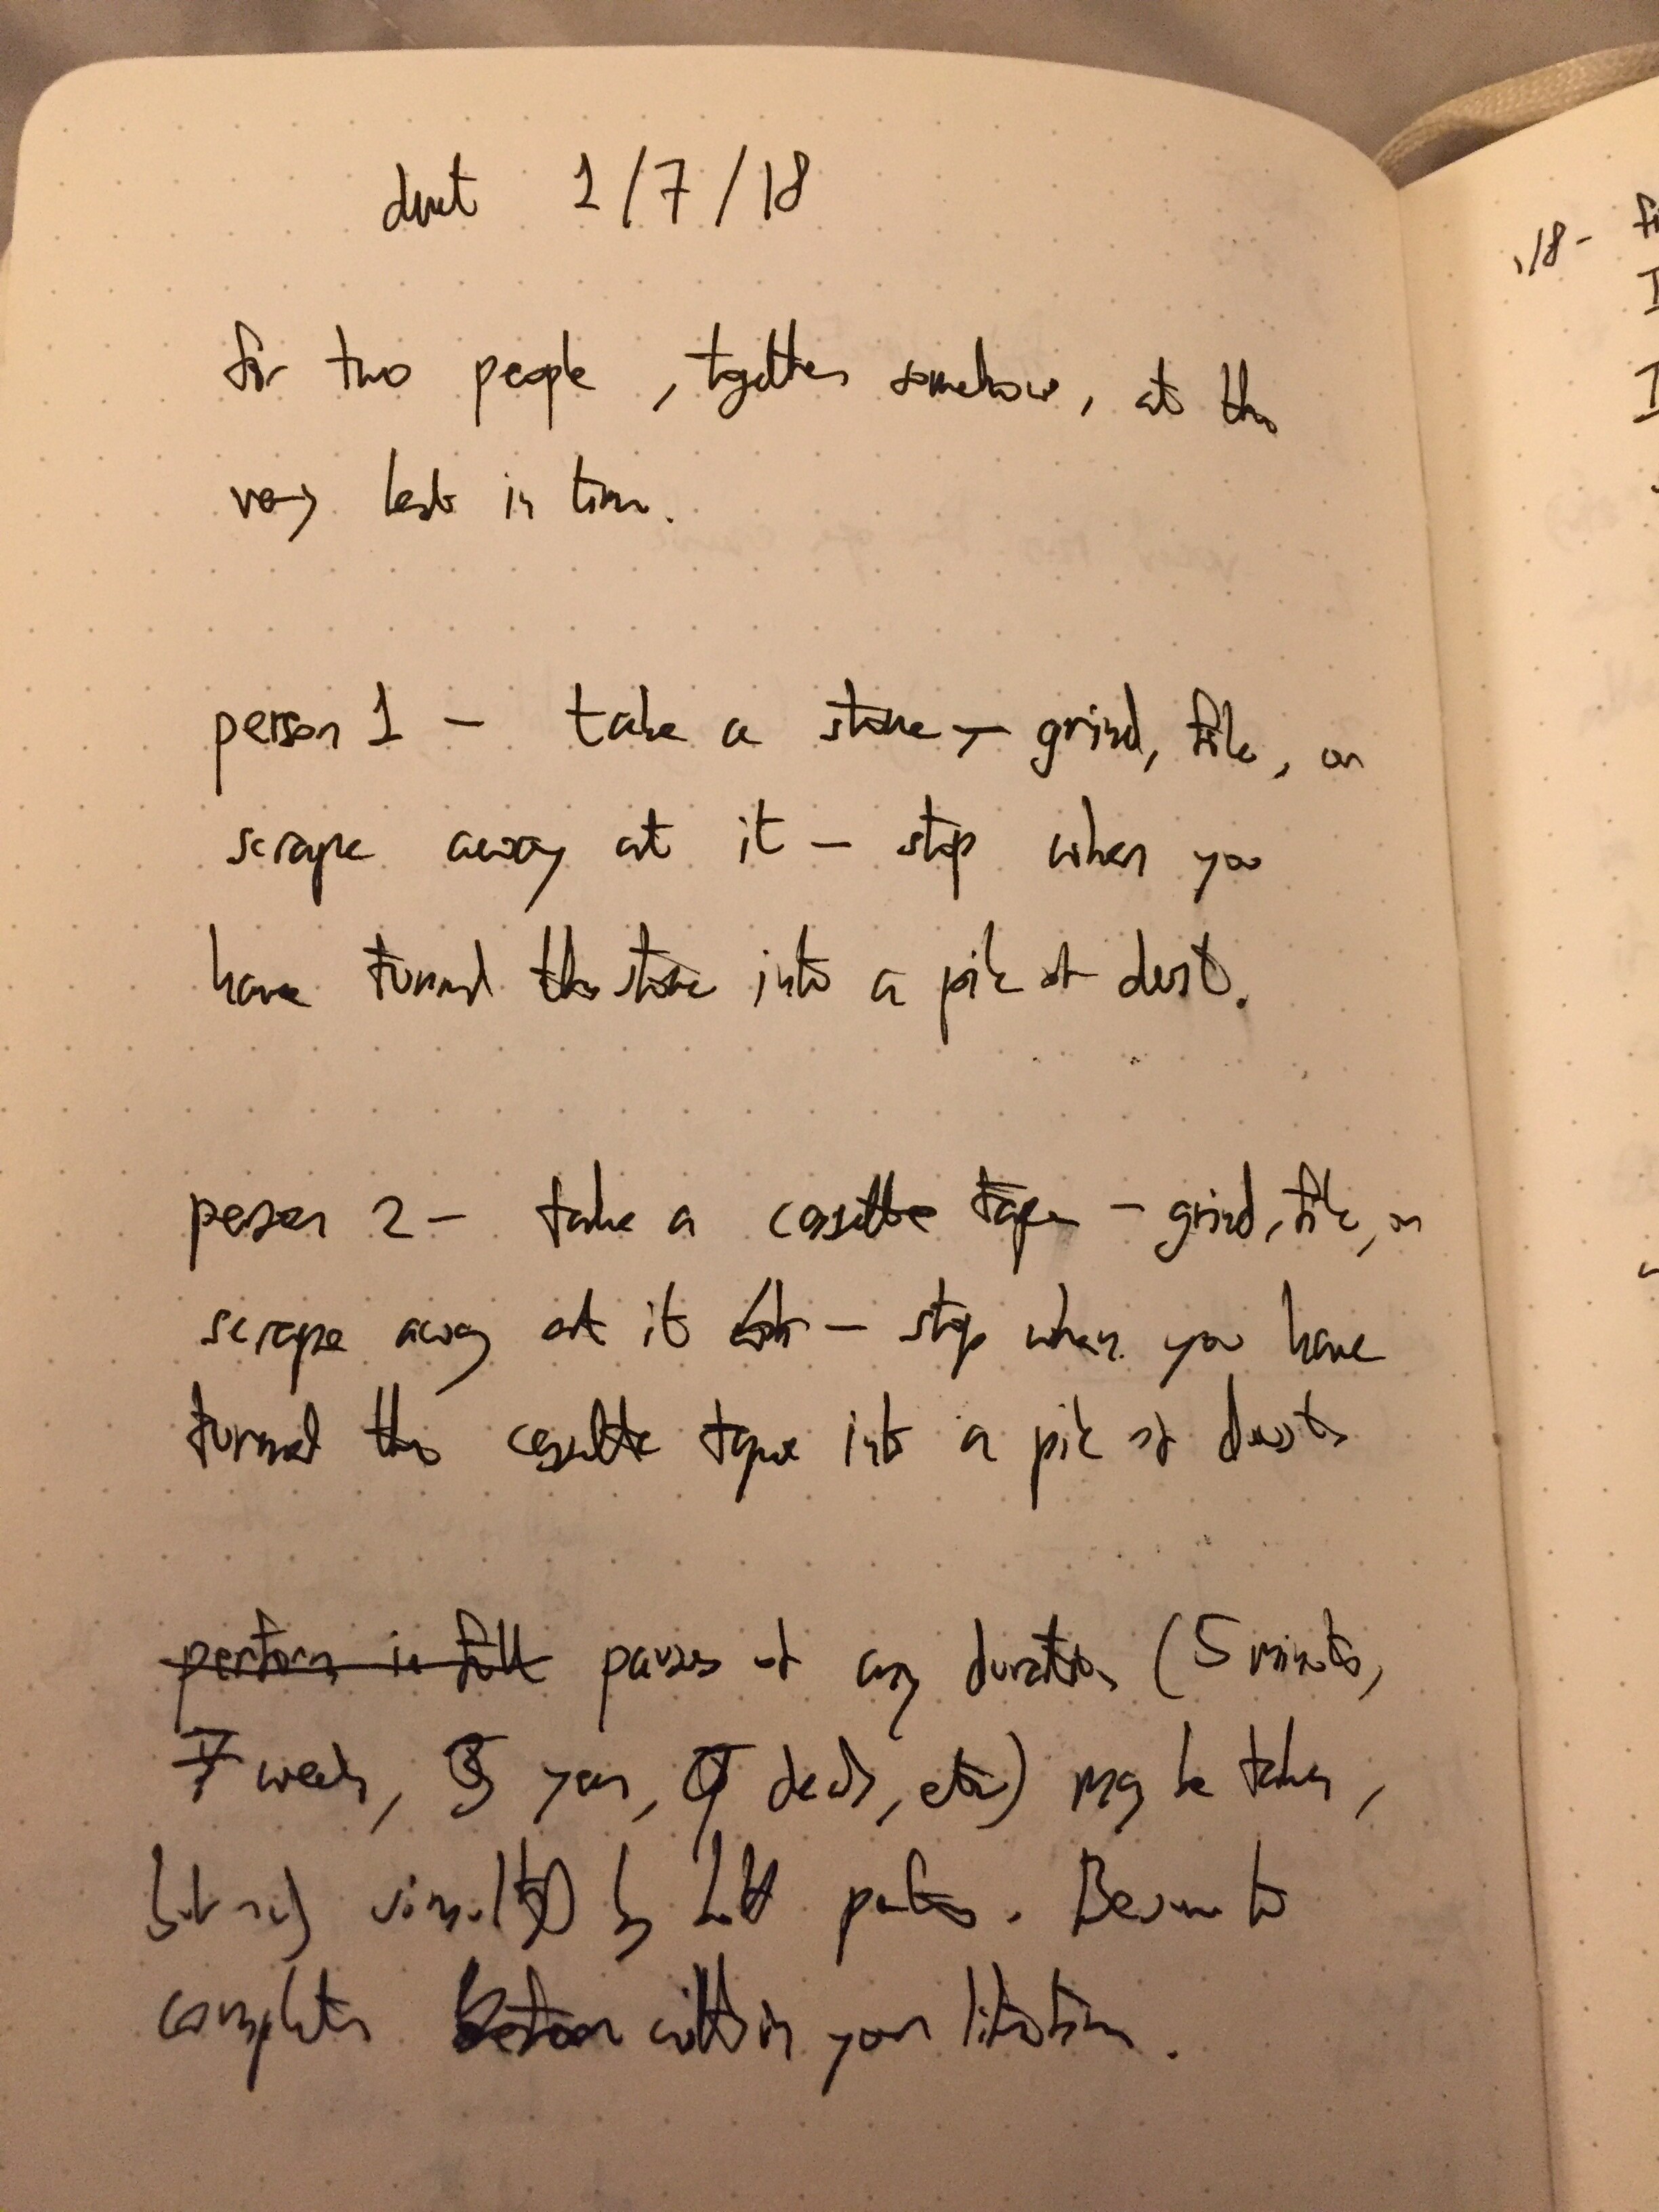 duet 1/7/18
for two people, together somehow, at the
very least in time.
person 1 - take a stone - grind, file, or
scrape away at it - stop when you
have turned the stone into a pile of dust.
person 2 - take a cassette tape - grind, file, or
scrape away at it - stop when you have
turned the cassette tape into a pile of dust
perform in full pauses of any duration (5 minutes,
7 weeks, years, decades, etc) may be taken,
but only by both parties. Be sure to
complete within your lifetime.
1/8 -